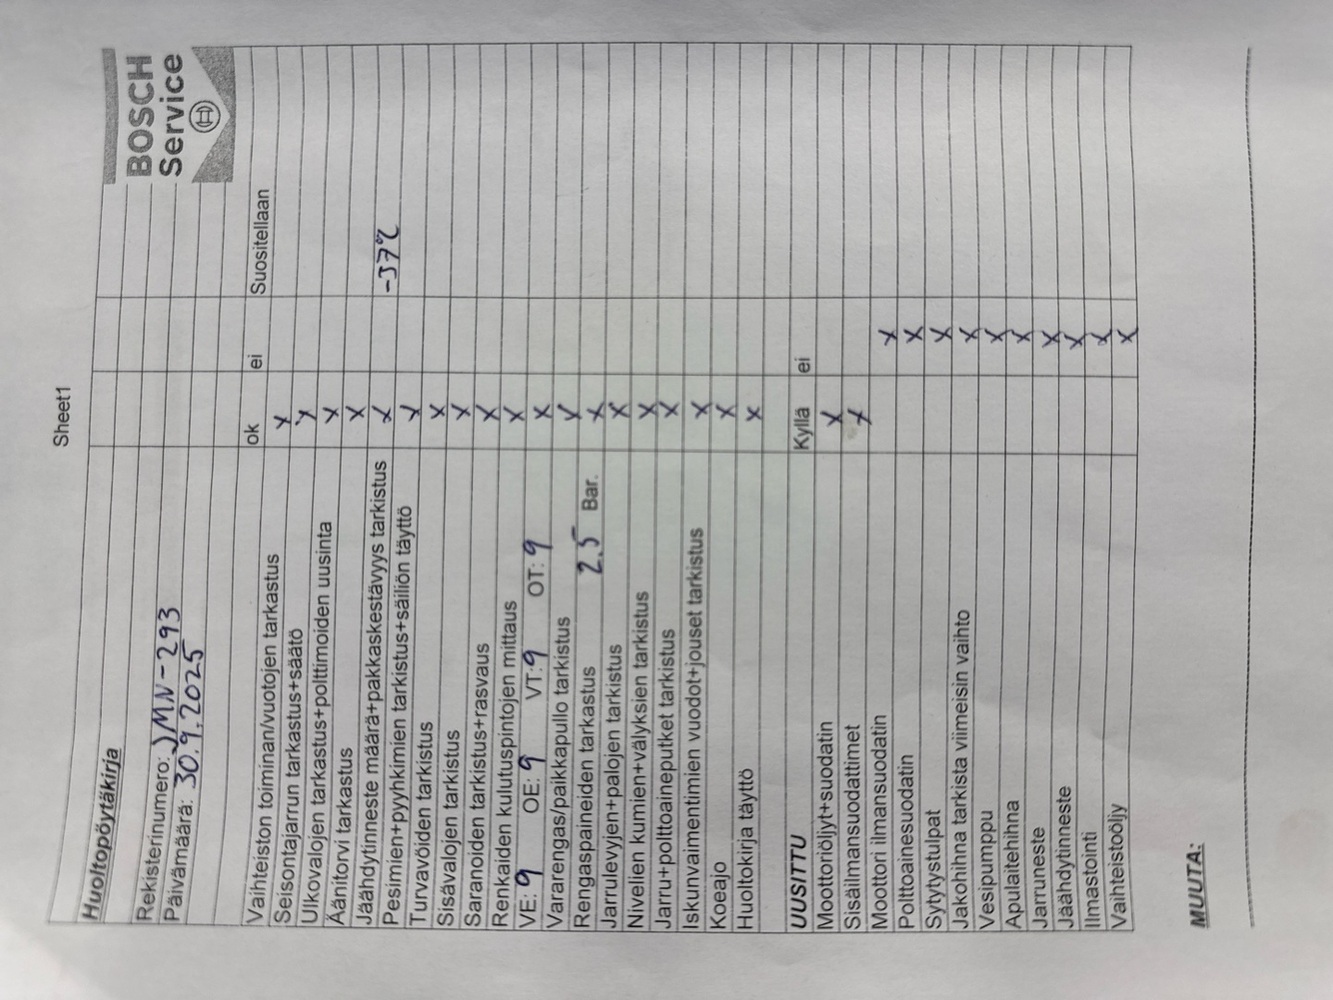 Sheet1
Huoltopöytäkirja
BOSCH
Service
Rekisterinumero: JMN-293
Päivämäärä: 30.9.2025
ok ei Suositellaan
Vaihteiston toiminan/vuotojen tarkastus x
Seisontajarrun tarkastus+säätö x
Ulkovalojen tarkastus+polttimoiden uusinta x
Äänitorvi tarkastus x
Jäähdytinneste määrä+pakkaskestävyys tarkistus x -37°C
Pesimien+pyyhkimien tarkistus+säiliön täyttö x
Turvavöiden tarkistus x
Sisävalojen tarkistus x
Saranoiden tarkistus+rasvaus x
Renkaiden kulutuspintojen mittaus x
VE: 9 OE: 9 VT: 9 OT: 9 x
Vararengas/paikkapullo tarkistus x
Rengaspaineiden tarkastus 2.5 Bar. x
Jarrulevyjen+palojen tarkistus x
Nivelien kumien+välyksien tarkistus x
Jarru+polttoaineputket tarkistus x
Iskunvaimentimien vuodot+jouset tarkistus x
Koeajo x
Huoltokirja täyttö x
UUSITTU Kyllä ei
Moottoriöljyt+suodatin x
Sisäilmansuodattimet x
Moottori ilmansuodatin x
Polttoainesuodatin x
Sytytystulpat x
Jakohihna tarkista viimeisin vaihto x
Vesipumppu x
Apulaitehihna x
Jarruneste x
Jäähdytinneste x
Ilmastointi x
Vaihteistoöljy x
MUUTA: